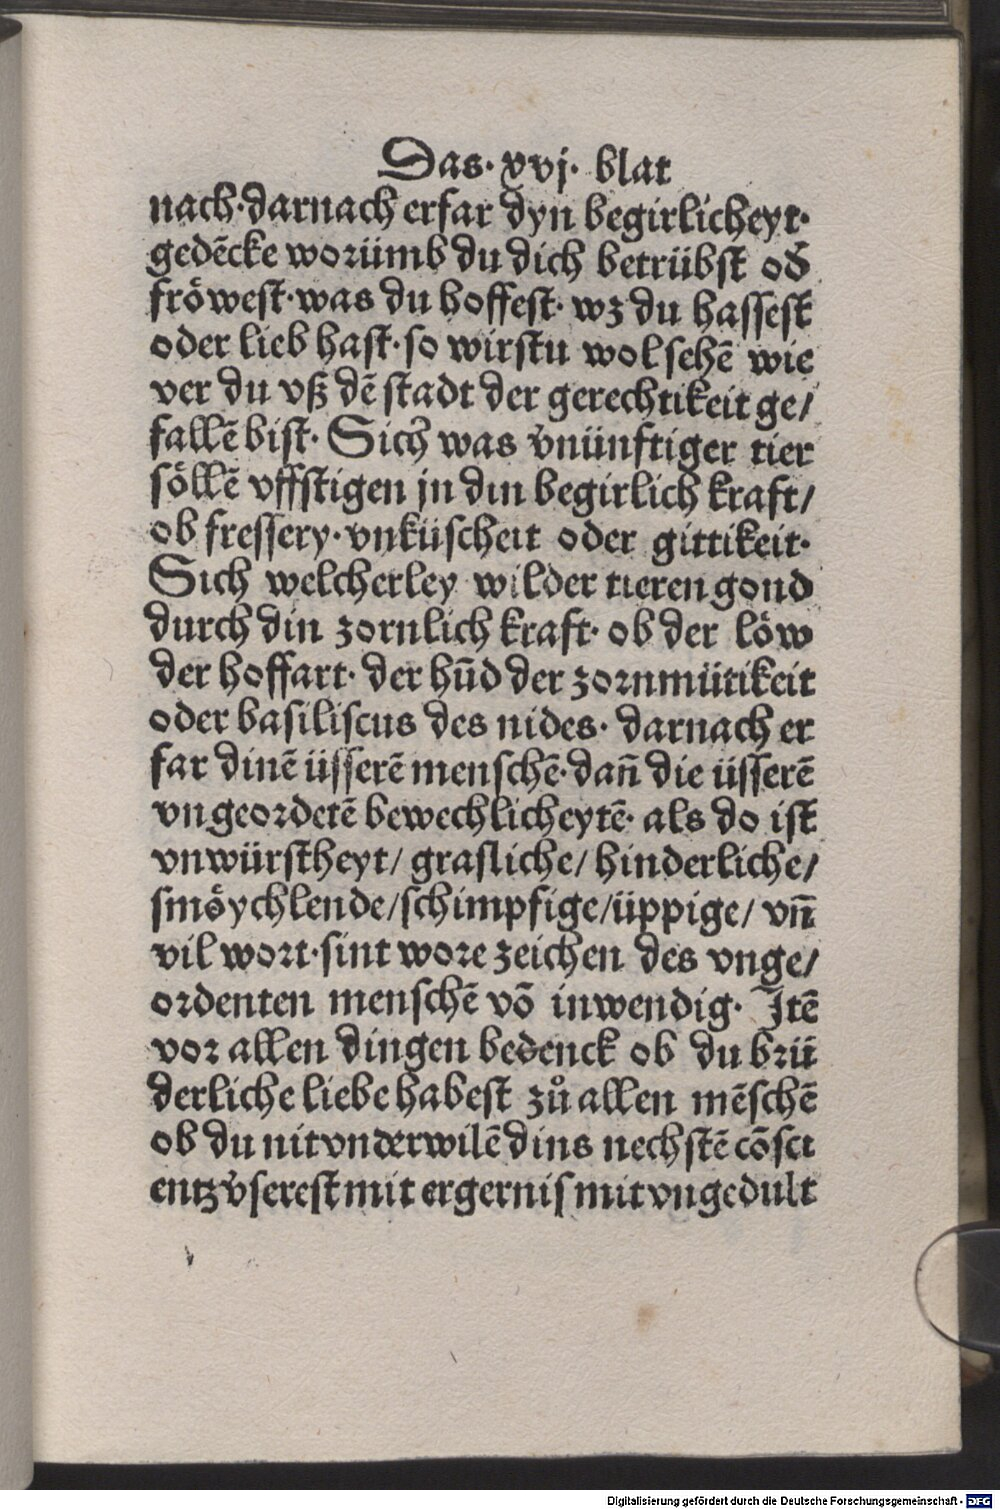 Das· xvj· blat
nach·darnach erfar dyn begirlicheyt·
gedēcke worümb du dich betrübst od̛
fröwest·was du hoffest· wz du hassest
oder lieb hast·so wirstu wol sehē wie
ver du vß dē stadt der gerechtikeit ge/
fallē bist· Sich was v̛nünftiger tier
söllē vffstigen jn din begirlich kraft/
ob fressery·vnküscheit oder gittikeit·
Sich welcherley wilder tieren gond
durch din zornlich kraft· ob der löw
der hoffart· der hūd der zornmütikeit
oder basiliscus des nides· darnach er
far dinē üsserē menschē·dañ die üsserē
vngeordetē bewechlicheytē· als do ist
vnwürstheyt/ grasliche/ hinderliche/
smöychlende/schimpfige/üppige/ vñ
vil wort·sint wore zeichen des vnge/
ordenten menschē vō inwendig· Jtē
vor allen dingen bedenck ob du brü
derliche liebe habest zů allen mēschē
ob du nit vnderwilē dins nechstē cōsci
entz v̛serest mit ergernis mit vngedult
Digitalisierung gefördert durch die Deutsche Forschungsgemeinschaft - DFG